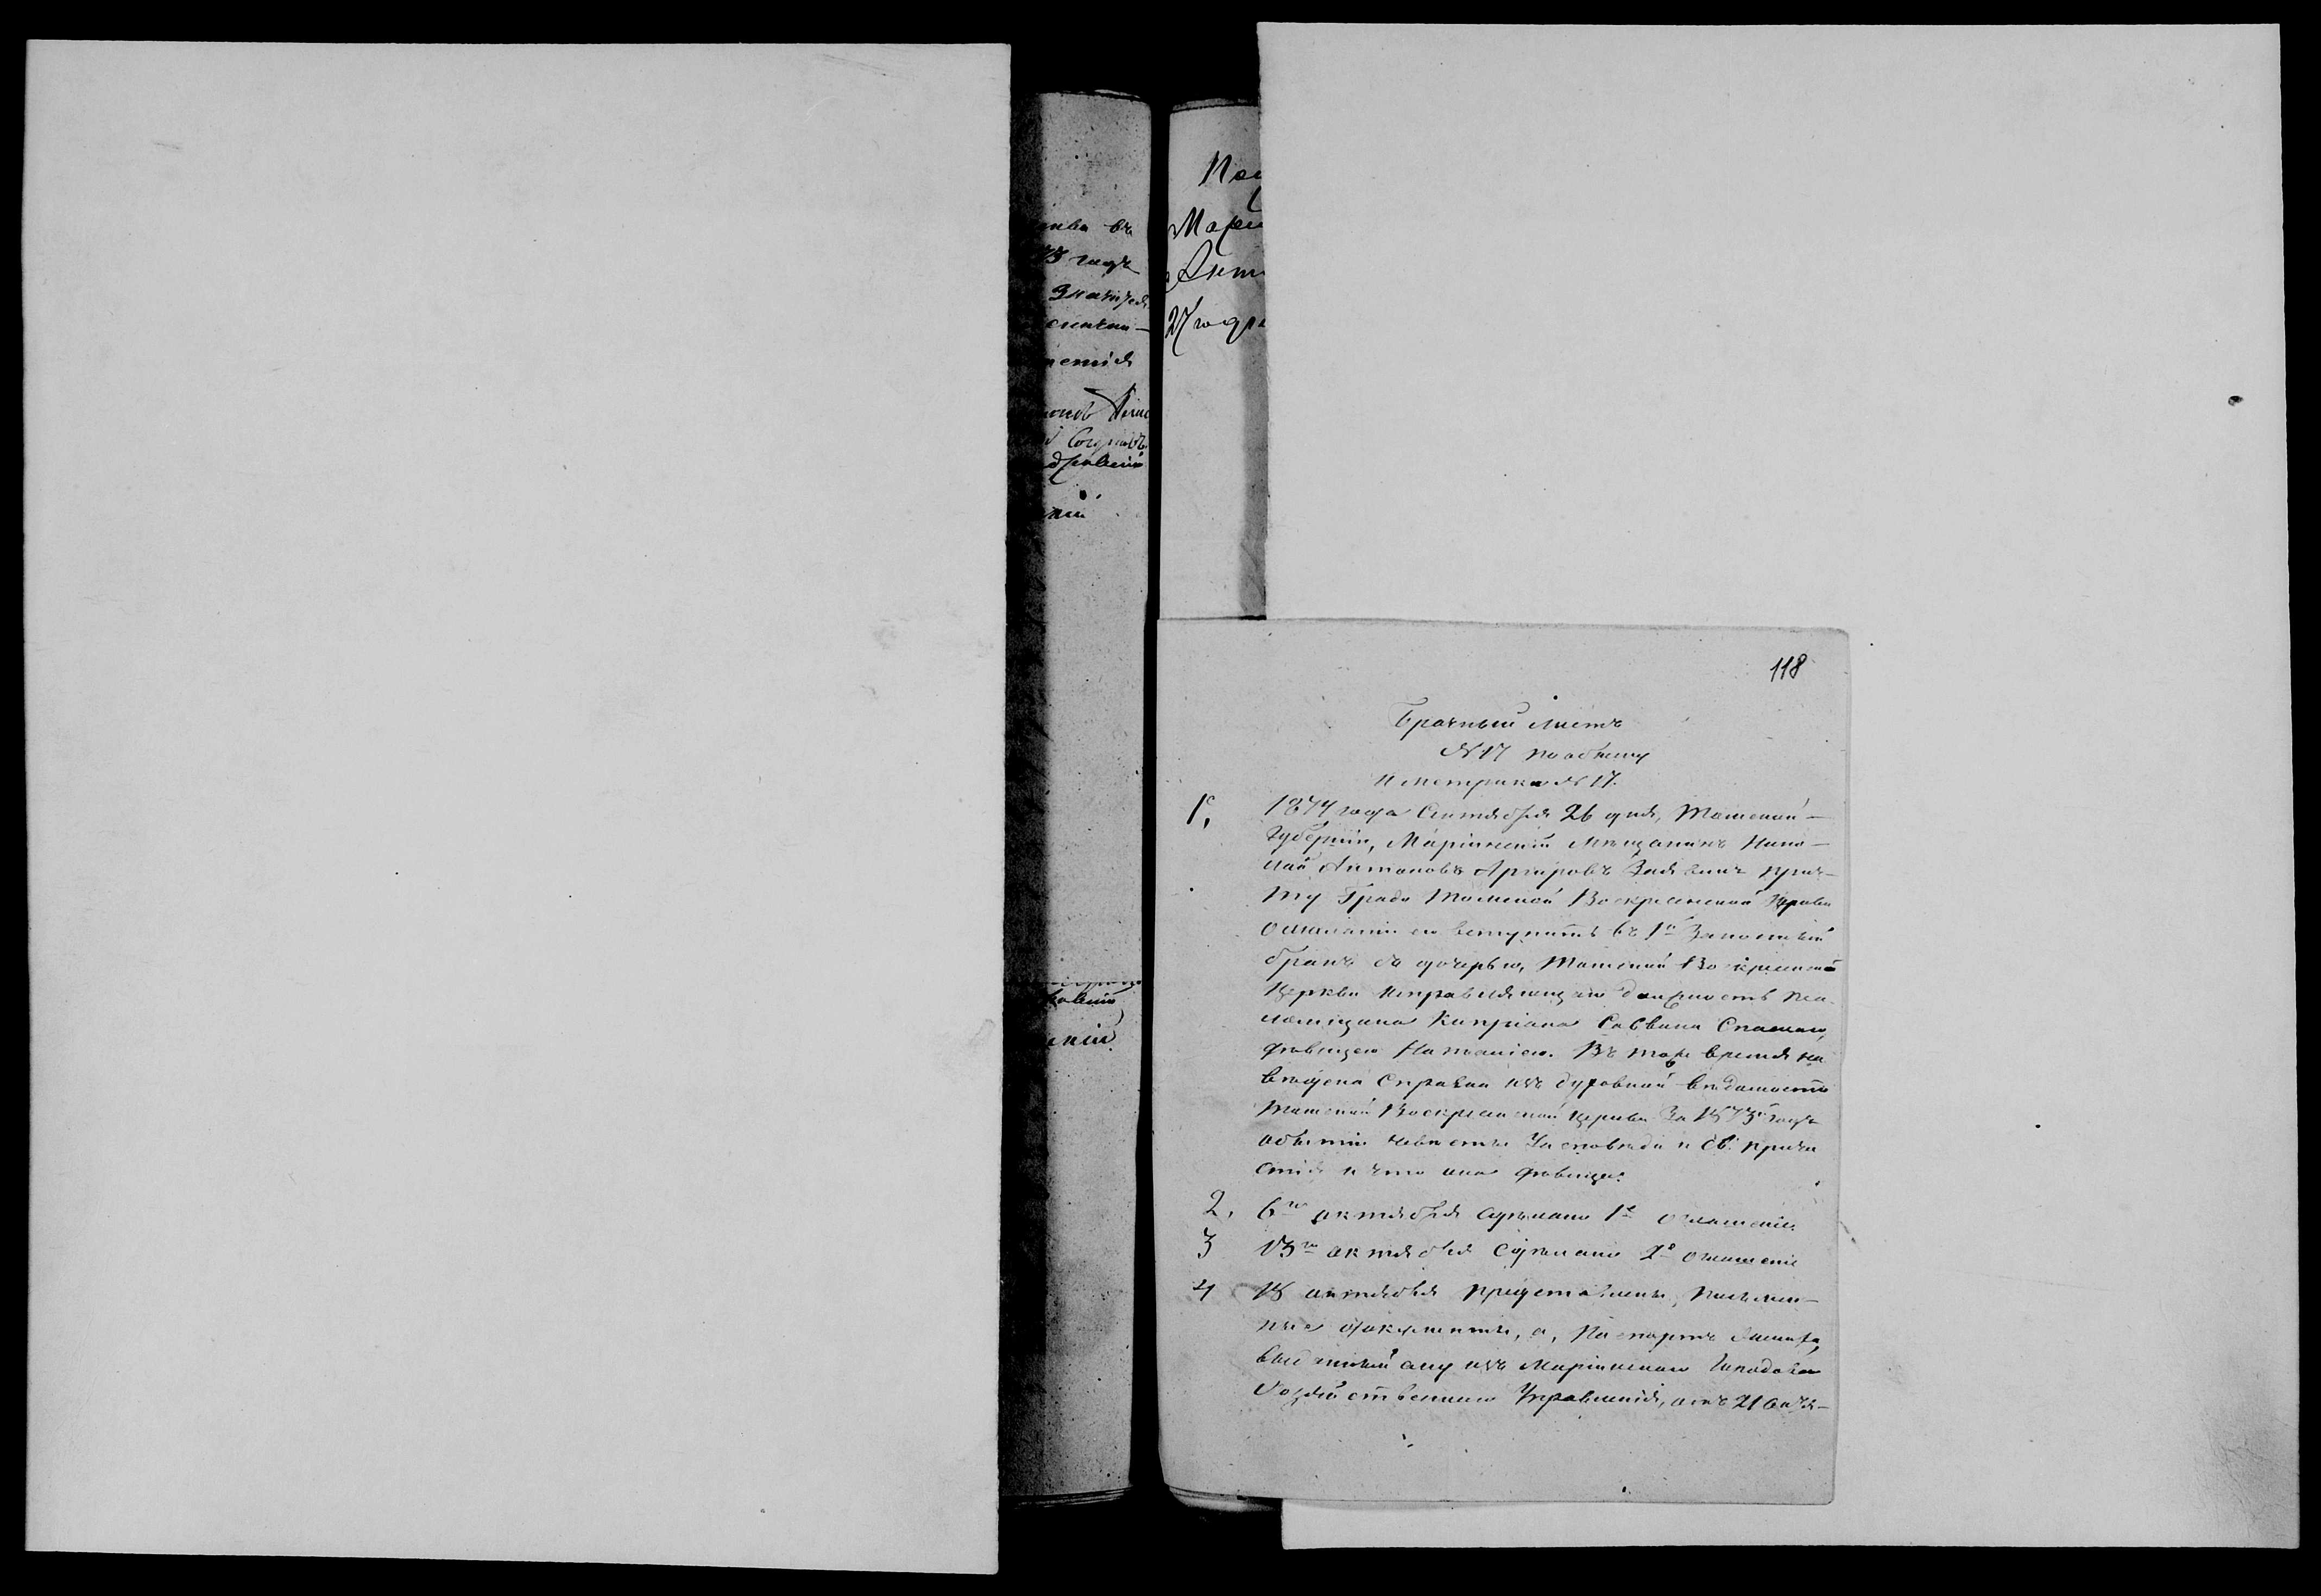 118
Брачный листъ
№ 17 по обыску
и метрика № 17.
1е, 1874 года Сентября 26 дня, Томской
Губерніи, Маріинскій мѣщанинъ Нико-
лай Антоновъ заявилъ прич-
ту Града Томской Воскресенской Церкви
о желаніи его вступить въ 1й Законный
бракъ съ дочерью, Томской Воскресенской
Церкви исправляющаго должность пса-
ломщика Кипріана Саввина
дѣвицею В тоже время на
ведена Справка изъ духовной вѣдомости
Томской Воскресенской Церкви за 1873й годъ
о бытіи невѣсты у исповѣди и Св. прича
стія и что она дѣвица.
2, 6го октября сдѣлано 1е оглашеніе
3 13го октября сдѣлано 2е оглашеніе
4 18 октября представлены, письмен-
ные документы, а, Паспортъ жениха,
выданный ему изъ Маріинскаго
Хозяйственнаго Управленія, отъ 21 Октя-
73 годъ
Мари
Анто
27 года